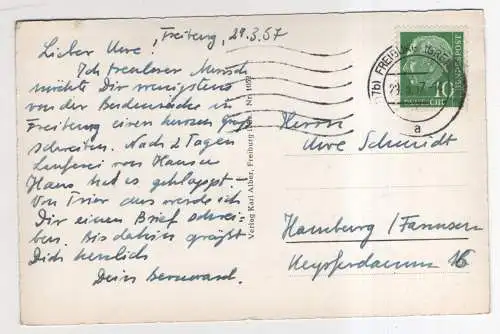 Freiburg, 29.3.57
Lieber Uwe!
Ich treuloser Mensch
möchte Dir wenigstens
von der Bude in
Freiburg einen kurzen Gruß
schreiben. Nach 2 Tagen
Lauferei von Haus zu
Haus hat es geklappt!
Von Trier aus werde ich
Dir einen Brief schrei-
ben. Bis dahin grüßt
Dich herzlich
Dein Bernward.
Verlag Karl Alber, Freiburg Nr. 1092
(17b) FREIBURG
a
DEUTSCHE BUNDESPOST
10
Herrn
Uwe Schmidt
Hamburg / Farmsen
Neusurenland 16